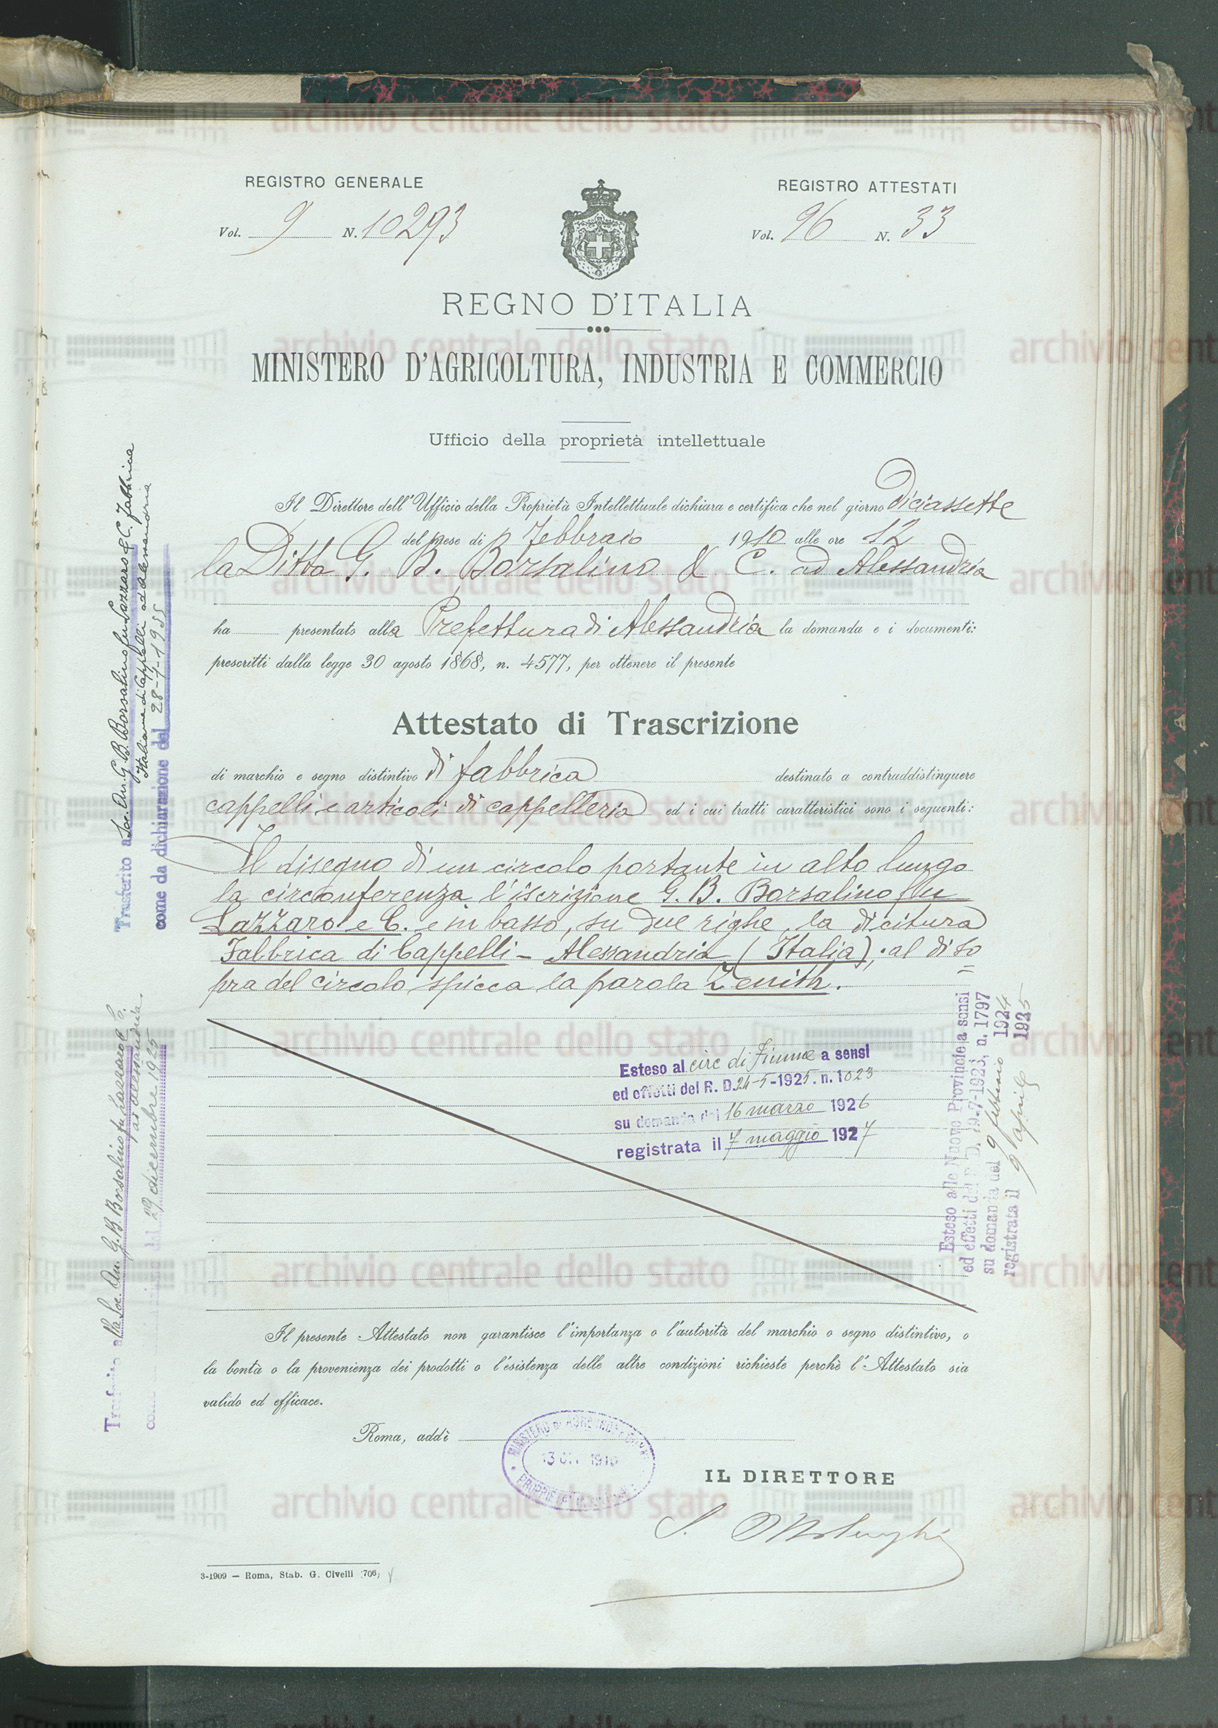 REGISTRO GENERALE
Vol. 9 N. 10293
REGISTRO ATTESTATI
Vol. 96 N. 33
REGNO D'ITALIA
MINISTERO D'AGRICOLTURA, INDUSTRIA E COMMERCIO
Ufficio della proprietà intellettuale
Il Direttore dell'Ufficio della Proprietà Intellettuale dichiara e certifica che nel giorno diciassette
del mese di Febbraio 1910 alle ore 12
la Ditta G. B. Borsalino & C. ad Alessandria
ha presentato alla Prefettura di Alessandria la domanda e i documenti:
prescritti dalla legge 30 agosto 1868, n. 4577, per ottenere il presente
Attestato di Trascrizione
di marchio e segno distintivo di fabbrica destinato a contraddistinguere
cappelli e articoli di cappelleria ed i cui tratti caratteristici sono i seguenti:
Il disegno di un circolo portante in alto lungo
la circonferenza l'iscrizione G. B. Borsalino fu
Lazzaro e C. e in basso, su due righe, la dicitura
Fabbrica di Cappelli - Alessandria (Italia); al di so=
pra del circolo spicca la parola Zenith.
Esteso al circ di Fiume a sensi
ed effetti del R. D. 24-5-1925. n. 1023
su domanda del 16 marzo 1926
registrata il 7 maggio 1927
Esteso alle Nuove Provincie a sensi
ed effetti del R. D. 19-7-1923, n. 1797
su domanda del 9 febbraio 1924
registrata il 9 aprile 1925
Trasferito a Soc. An. G. B. Borsalino fu Lazzaro & C. Fabbrica
Italiana di Cappelli ad Alessandria
come da dichiarazione del 28-1-1935
Trasferito alla Soc. An. G. B. Borsalino fu Lazzaro e C.
ad Alessandria
29 dicembre 1925
Il presente Attestato non garantisce l'importanza o l'autorità del marchio o segno distintivo, o
la bontà o la provenienza dei prodotti o l'esistenza delle altre condizioni richieste perchè l'Attestato sia
valido ed efficace.
Roma, addì
1910
IL DIRETTORE
3-1909 — Roma, Stab. G. Civelli
archivio centrale dello stato